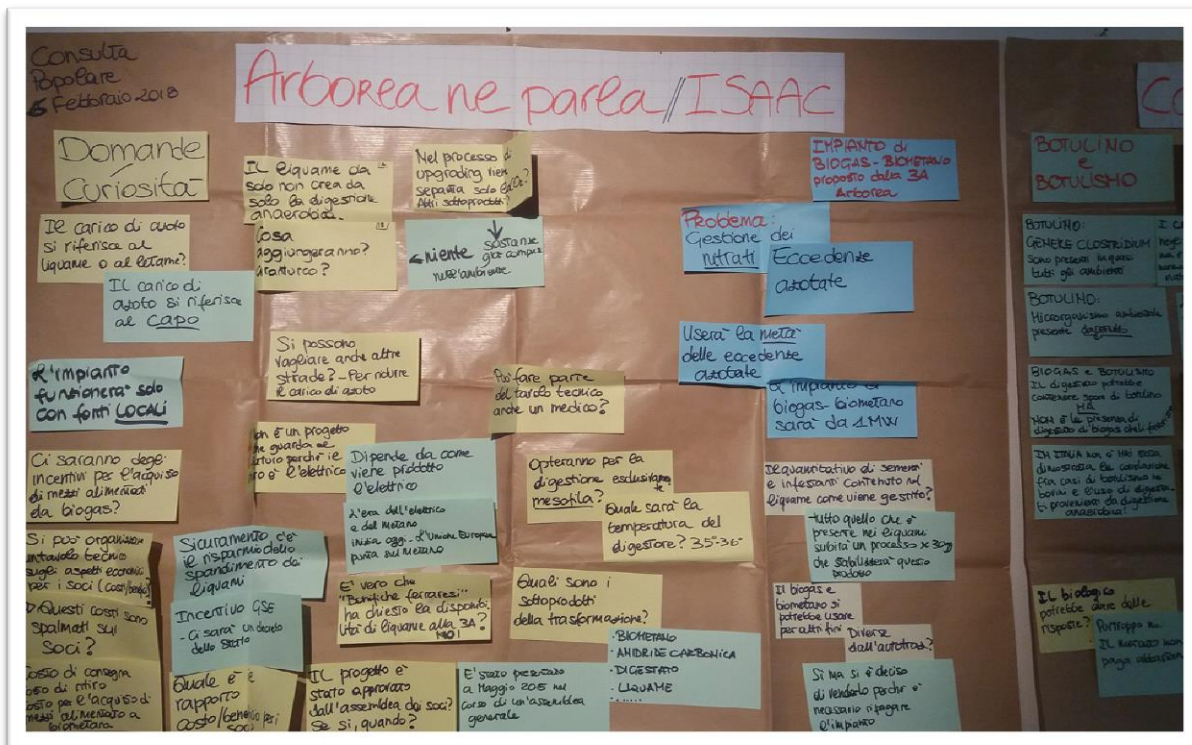 Consulta
Popolare
5 Febbraio 2018
Arborea ne parla // ISAAC
Domande
Curiosità
Il carico di azoto
si riferisce al
liquame o al letame?
Il carico di
azoto si riferisce
al CAPO
L'impianto
funzionerà solo
con fonti LOCALI
Ci saranno degli
incentivi per l'acquisto
di mezzi alimentati
da biogas?
Si può organizzare
un tavolo tecnico
sugli aspetti economici
per i soci (costi/benefici)
Questi costi sono
spalmati sui
soci?
costo di consegna
costo di ritiro
costo per l'acquisto di
mezzi alimentato a
biometano
Il liquame da
solo non crea da
solo la digestione
anaerobica.
Cosa
aggiungeranno?
Granturco?
Nel processo di
upgrading
separa solo la CO2?
Altri sottoprodotti?
niente sostanze
già compre
nell'ambiente
Si possono
vagliare anche altre
strade? - Per ridurre
il carico di azoto
Può fare parte
del tavolo tecnico
anche un medico?
Non è un progetto
che guarda al
futuro perchè il
è l'elettrico
Dipende da come
viene prodotto
l'elettrico
L'era dell'elettrico
e del metano
inizia oggi - L'Unione Europea
punta sul metano
Sicuramente c'è
il risparmio dello
spandimento dei
liquami
Incentivo GSE
- Ci sarà un decreto
dello Stato
Quale è il
rapporto
costo/beneficio per i
soci
E' vero che
"Bonifiche ferraresi"
ha chiesto la disponibi
lità di liquame alla 3A?
NO!
Il progetto è
stato approvato
dall'assemblea dei soci?
se si, quando?
E' stato presentato
a Maggio 2015 nel
corso di un'assemblea
generale
Opteranno per la
digestione esclusivamte
mesofila?
Quale sarà la
temperatura del
digestore? 35°-36°
Quali sono i
sottoprodotti
della trasformazione?
- BIOMETANO
- ANIDRIDE CARBONICA
- DIGESTATO
- LIQUAME
- .....
IMPIANTO di
BIOGAS - BIOMETANO
proposto dalla 3A
Arborea
Problema:
Gestione dei
nitrati
Eccedenze
azotate
Userà la metà
delle eccedenze
azotate
L'impianto di
biogas-biometano
sarà da 1MW
Il quantitativo di sementi
e infestanti contenuto nel
liquame come viene gestito?
-tutto quello che è
presente nei liquami
subirà un processo x 30gg
che stabilizzerà questo
prodotto
Il biogas e
biometano si
potrebbe usare
per altri fini
Diverse
dall'autotraz?
Si ma si è deciso
di venderlo perchè è
necessario ripagare
l'impianto
BOTULINO
e
BOTULISMO
BOTULINO:
GENERE CLOSTRIDIUM
Sono presenti in quasi
tutti gli ambienti
BOTULINO:
Microrganismo ambientale
presente dapertutto
BIOGAS e BOTULISMO
IL digestato potrebbe
contenere spore di botulino
MA
NON è la presenza di
digestato di biogas
IN ITALIA non è MAI stata
dimostrata la correlazione
fra casi di botulismo in
bovini e l'uso di digesta-
ti proveniente da digestione
anaerobica!
Il biologico
potrebbe dare delle
risposte?
Purtroppo no
Il mercato non
paga abbastanza